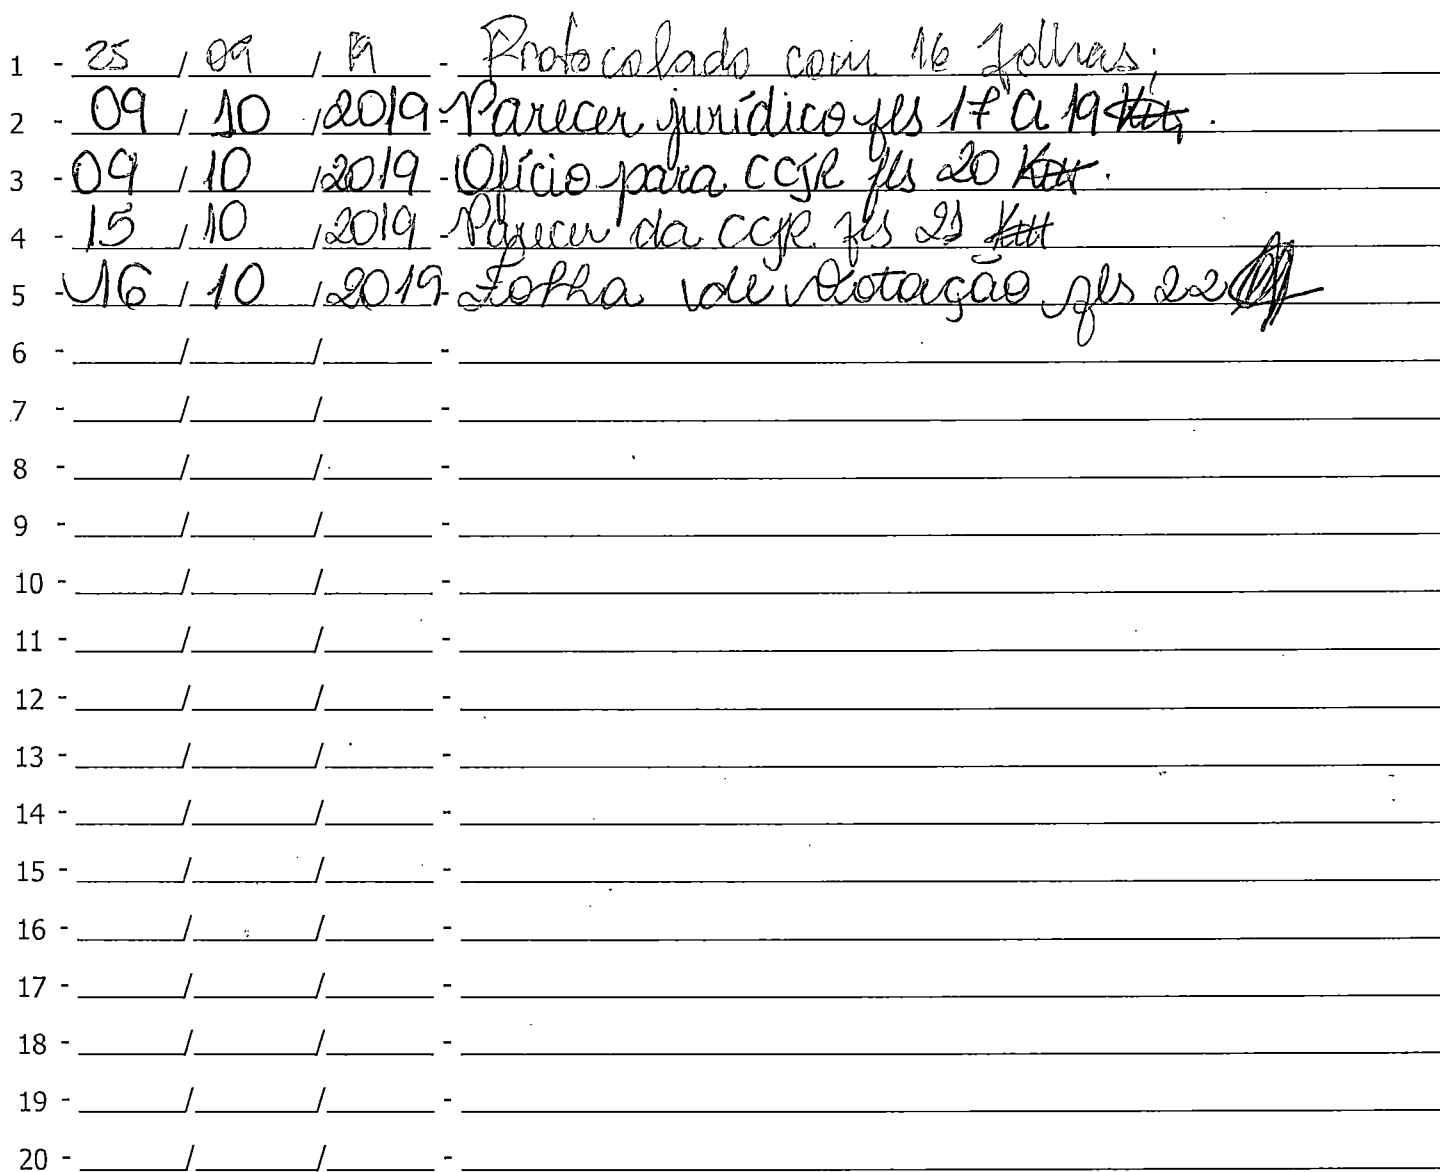 1 - 25 / 09 / 19 - Protocolado com 16 folhas;
2 - 09 / 10 / 2019 - Parecer jurídico fls 17 a 19 .
3 - 09 / 10 / 2019 - Ofício para CCJR fls 20 .
4 - 15 / 10 / 2019 - Parecer da CCJR fls 21
5 - 16 / 10 / 2019 - Folha de Votação fls 22
6 - / / -
7 - / / -
8 - / / -
9 - / / -
10 - / / -
11 - / / -
12 - / / -
13 - / / -
14 - / / -
15 - / / -
16 - / / -
17 - / / -
18 - / / -
19 - / / -
20 - / / -